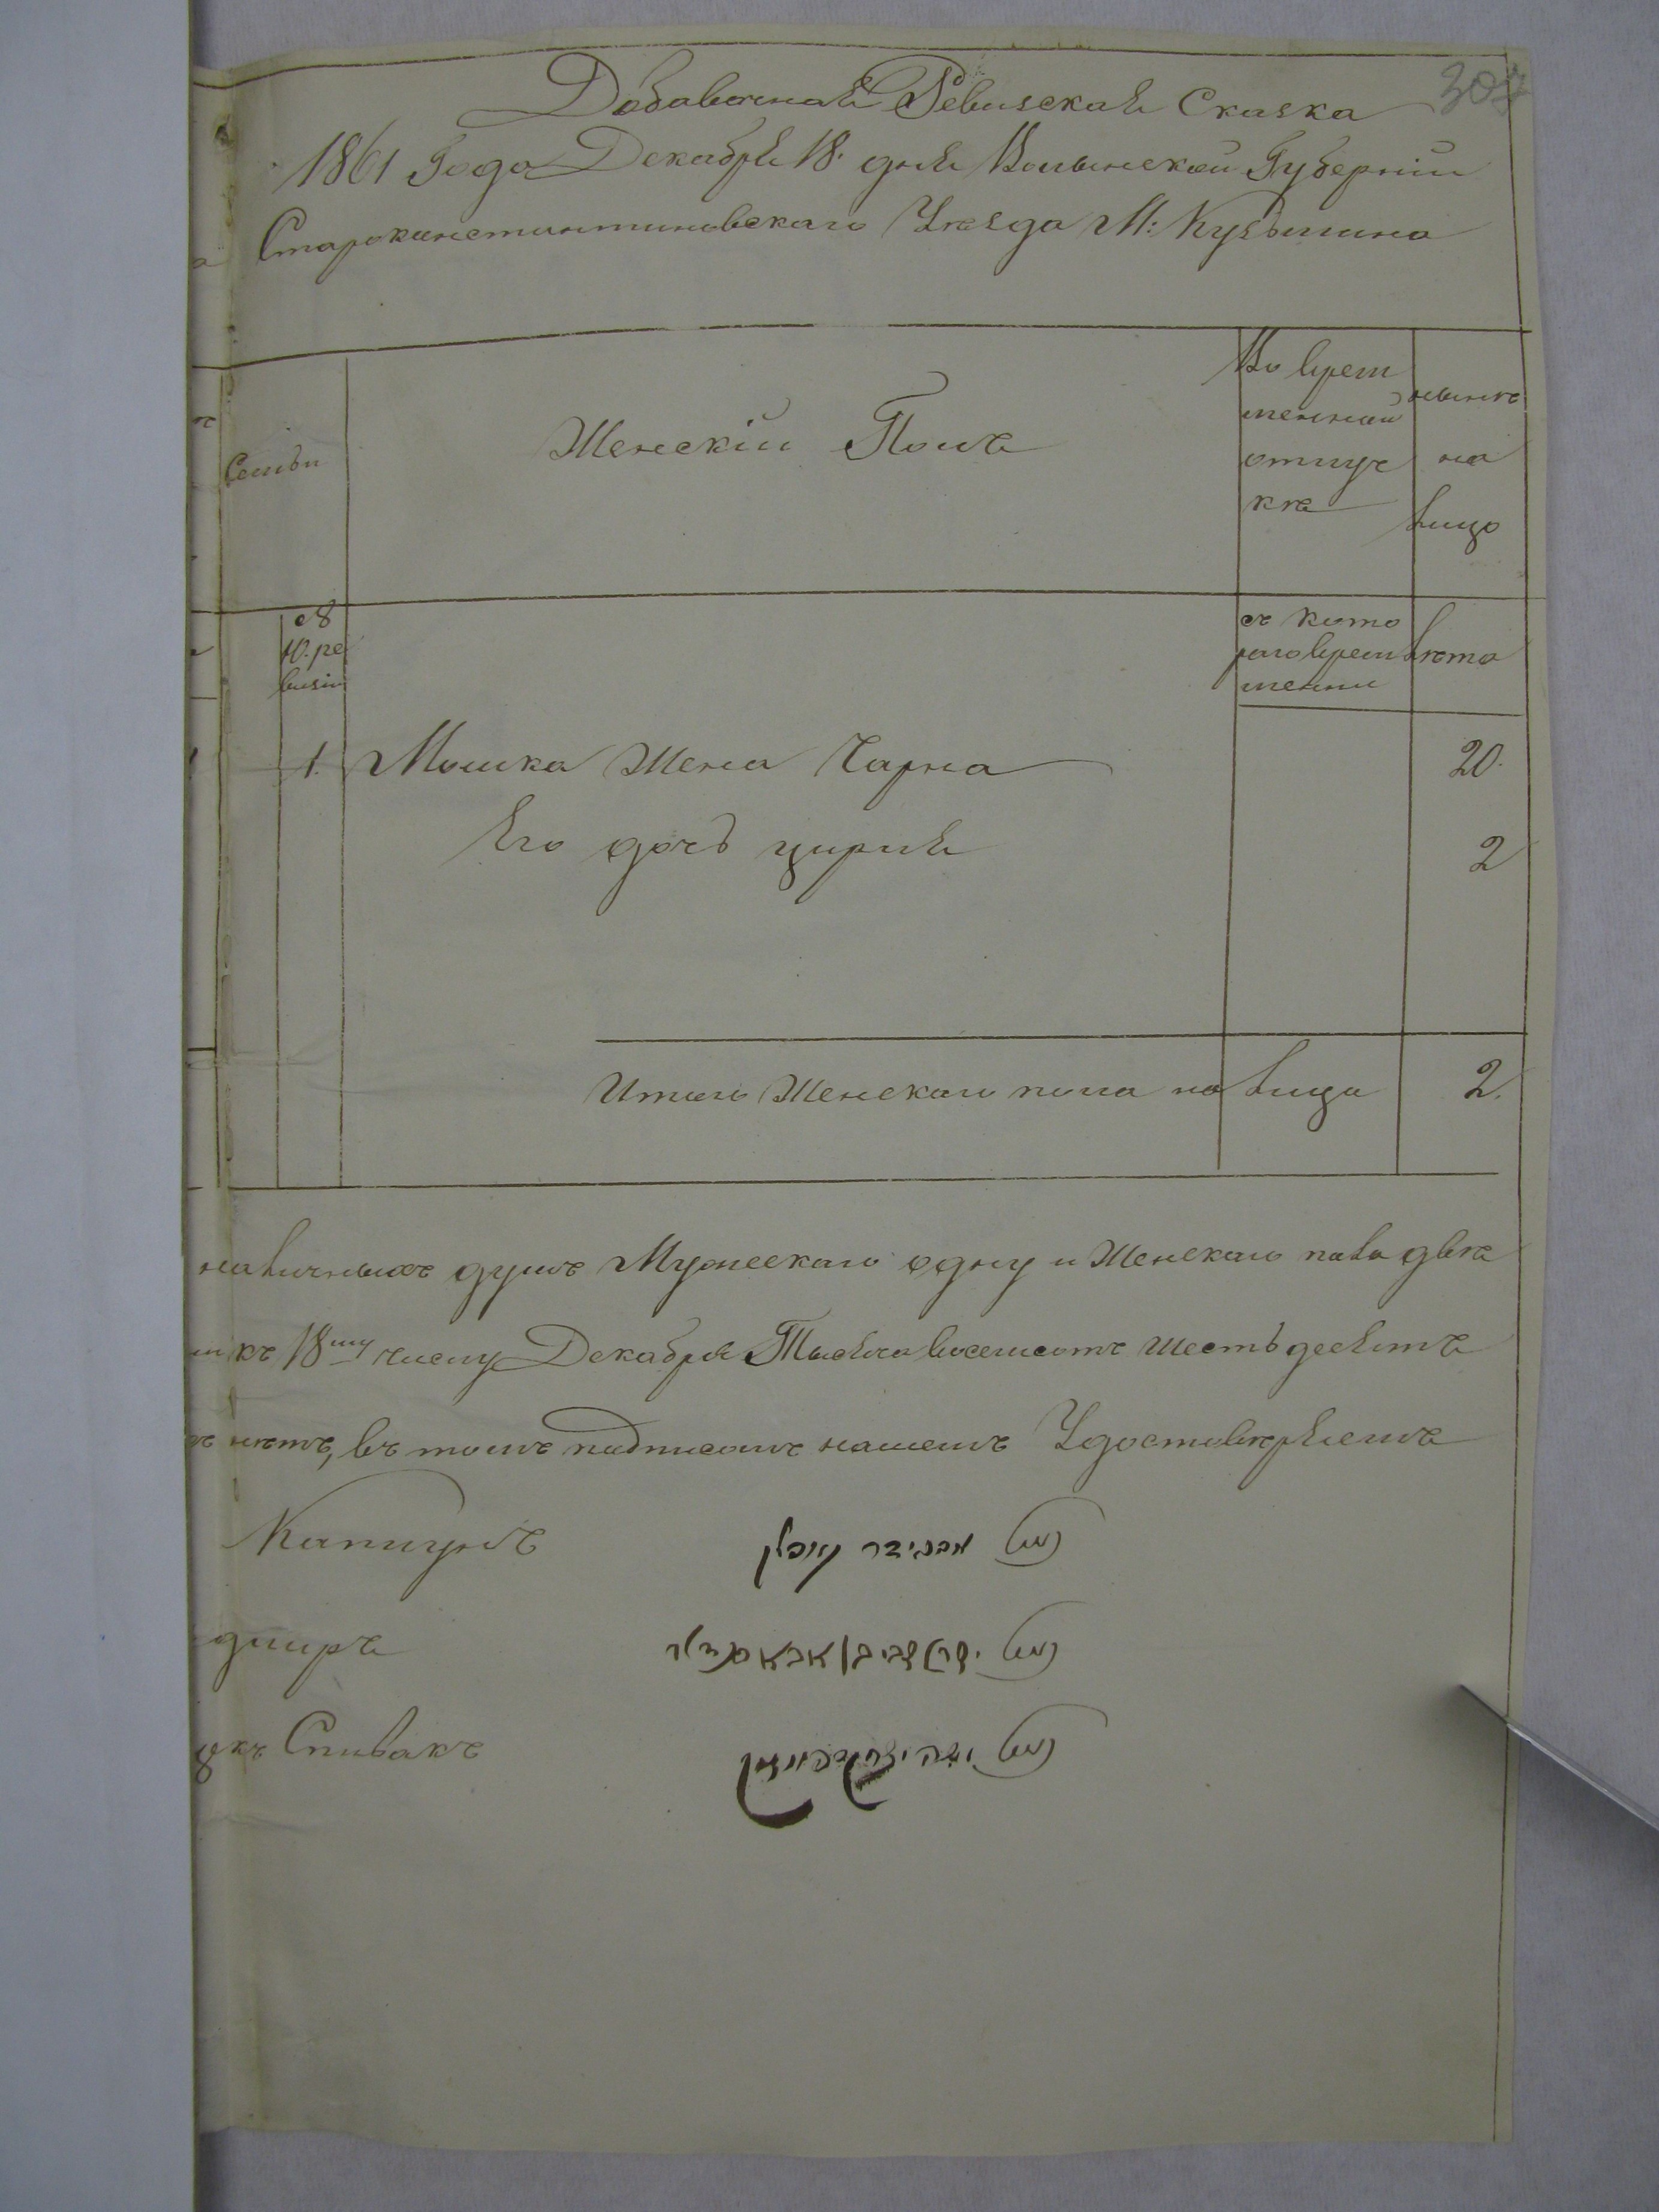 307
Добавочная Ревизская Сказка
1861 Года Декабря 18. дня Волынской Губернiи
Староконстантиновского Уезда М: Кузьмина
Семьи
Женскiй Полъ
Во врем
менной
отлуч
кѣ
нынѣ
на
лицо
10. ре
визiи
съ кото
раго врем
менни
лѣта
1. Мошка Жена Чарна 20.
Его дочь цирля 2
Итого Женскаго пола на лицо 2.
наличныхъ душъ Мужескаго одну и Женскаго пола двѣ
къ 18му числу Декабря Тысяча восемсотъ шестьдесятъ
нѣтъ, въ томъ подписомъ нашемъ Удостовѣряемъ
Каплунъ
נאם
длиръ
נאם
Спивакъ
נאם